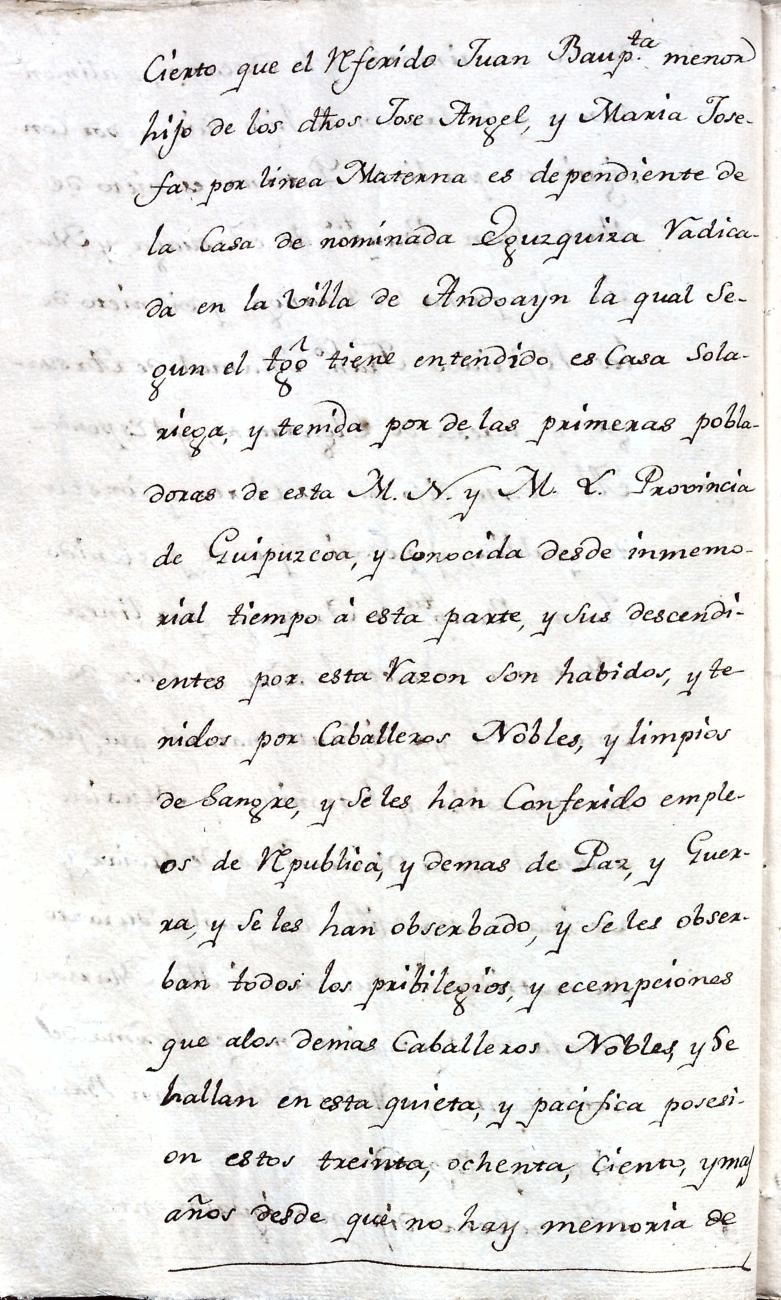 Cierto que el Rferido Juan Baup.ta menor
hijo de los dhos Jose Angel, y Maria Jose-
fa por linea Materna es dependiente de
la Casa de nominada Eguzquiza Radica-
da en la Villa de Andoayn la qual Se-
gun el tgo tiene entendido es Casa Sola-
riega, y tenida por de las primeras pobla-
doras de esta M. N. y M. L. Provincia
de Guipuzcoa, y Conocida desde inmemo-
rial tiempo á esta parte, y Sus descendi-
entes por esta Razon Son habidos, y te
nidos por Caballeros Nobles, y limpios
de Sangre, y Se les han Conferido emple-
os de Rpublica, y demas de Paz, y Guer-
ra, y Se les han obserbado, y Se les obser-
ban todos los pribilegios, y ecempciones
que alos demas Caballeros Nobles, y Se
hallan en esta quieta, y pacifica posesi-
on estos treinta, ochenta, Ciento, y mas
años desde que no hay memoria de